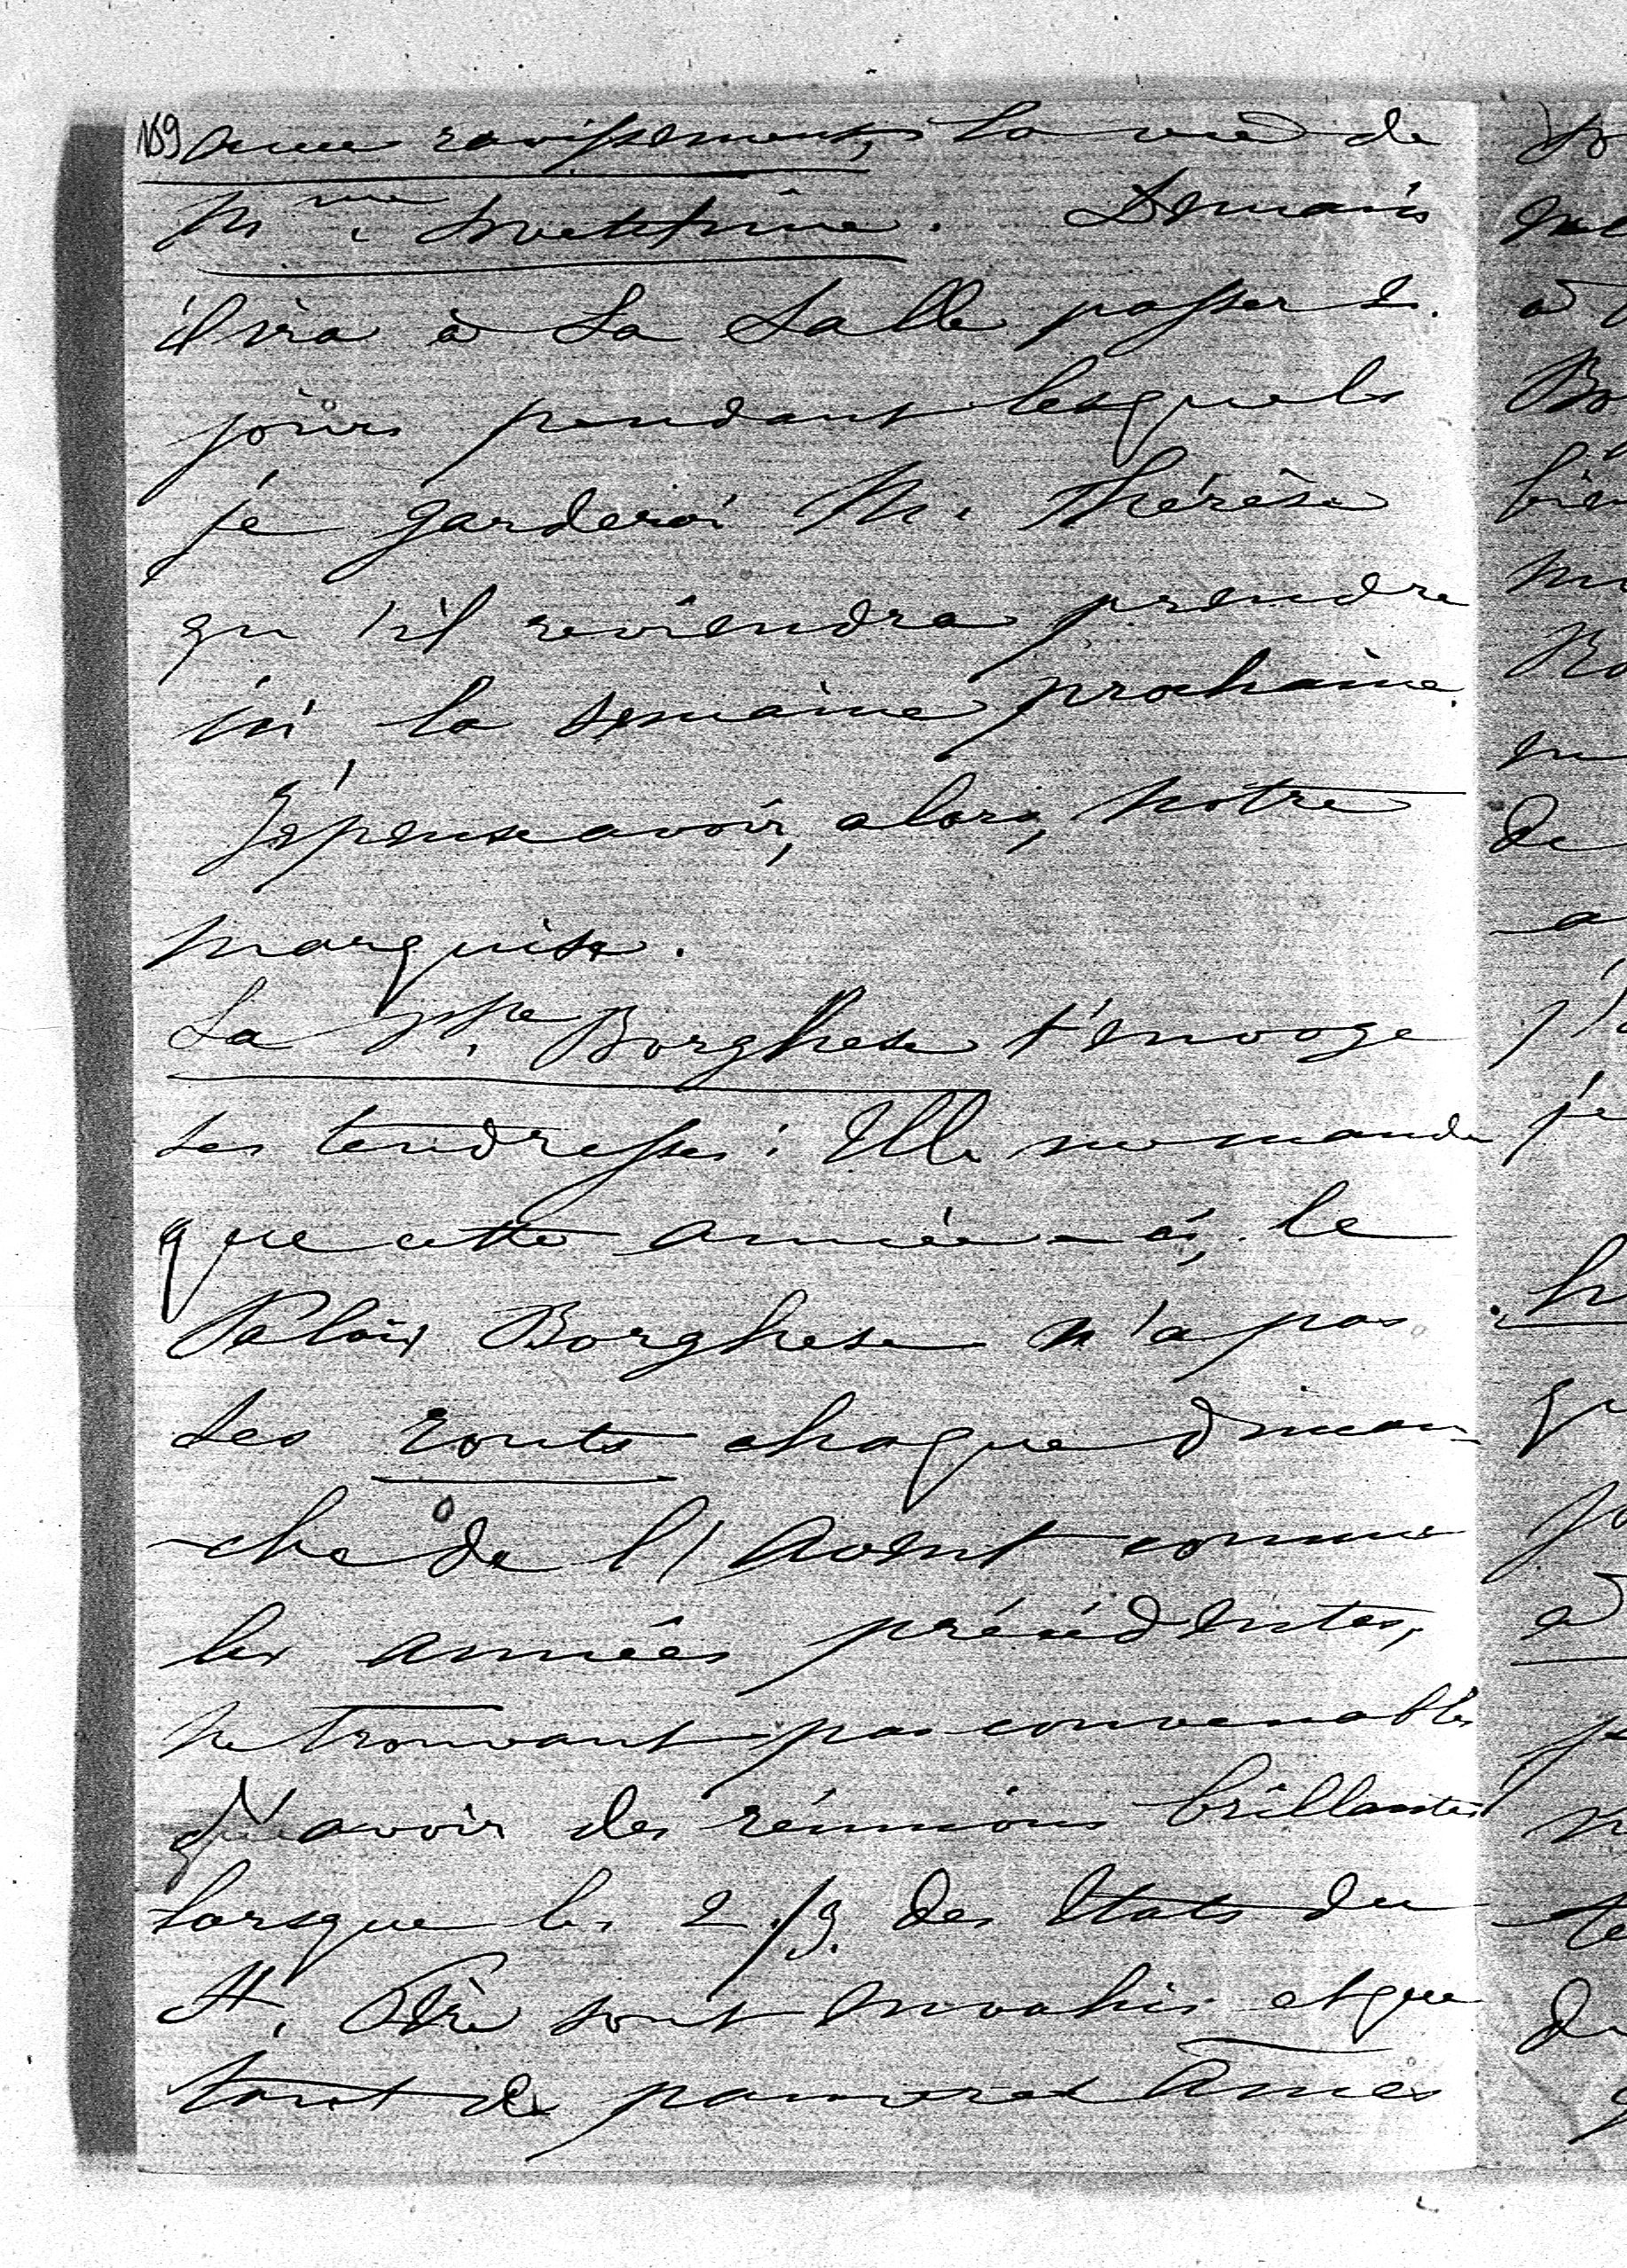 169 avec ravissement, la vie de
Mme Swetchine. Demain
il ira à La Salle passer 2.
jours pendant lesquels
je garderai M. Thérèse
qu'il reviendra prendre
ici la semaine prochaine.
Je pense avoir, alors, notre
marquise.
La Psse Borghese t'envoye
ses tendresses : Elle me mande
que cette année-ci, le
Palais Borghese n'a pas
ses routs chaque diman-
-che de l'Avent comme
les années précédentes,
ne trouvant pas convenable
d'avoir des réunions brillantes
lorsque les 2/3. des Etats du
St. Père sont envahis et que
tant de pauvres âmes